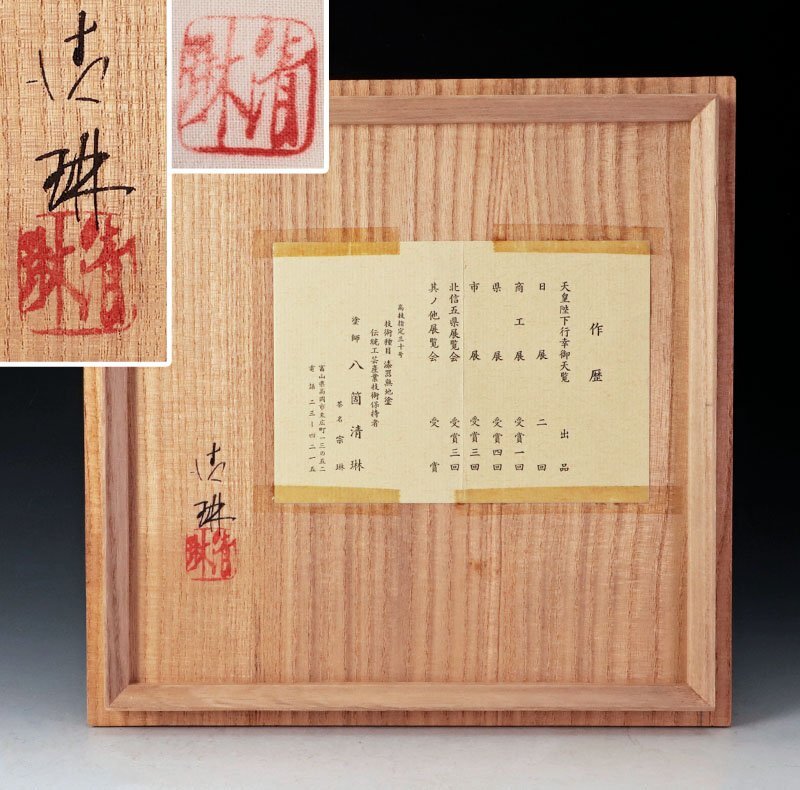 清琳
清琳
清琳
作歴
天皇陛下行幸御天覧 出品
日展 二回
商工展 受賞一回
県展 受賞四回
市展 受賞三回
北信五県展覧会 受賞三回
其ノ他展覧会 受賞
高技指定三十号
技術種目 漆器無地塗
伝統工芸産業技術保持者
塗師 八箇清琳
茶名 宗琳
富山県高岡市末広町一三の五二
電話 二三ー四二一五
清琳
清琳